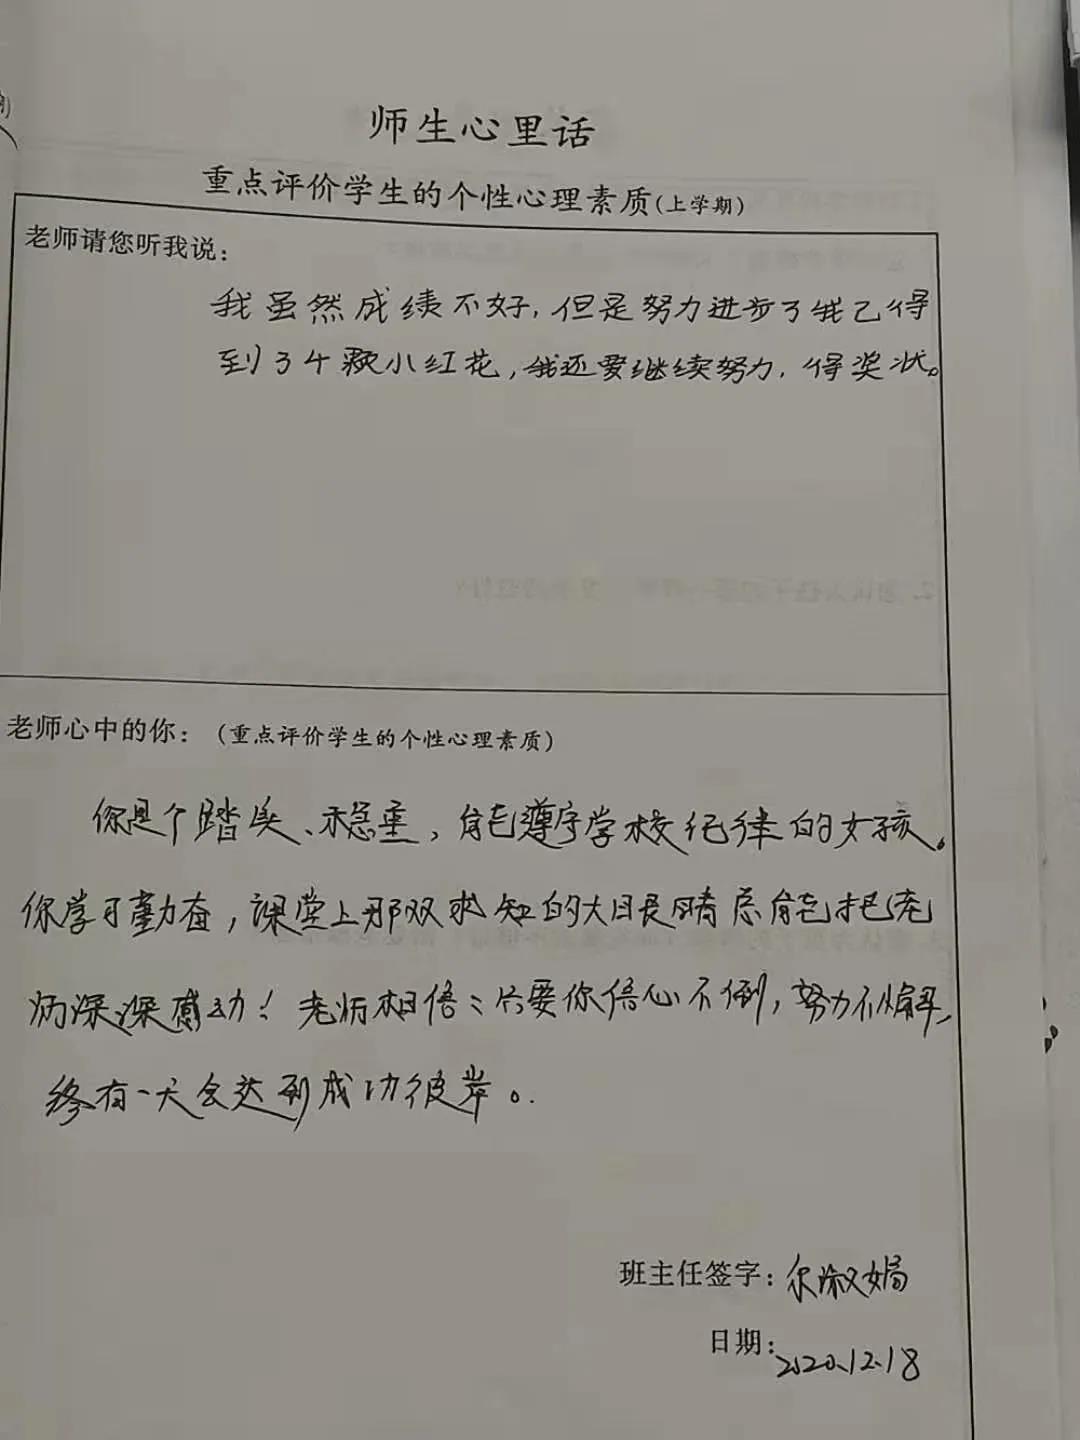 师生心里话
重点评价学生的个性心理素质(上学期)
老师请您听我说：
我虽然成绩不好,但是努力进步了我已得
到34颗小红花,我还要继续努力,得奖状。
老师心中的你：(重点评价学生的个性心理素质)
你是个踏实、稳重,能遵守学校纪律的女孩。
你学习勤奋,课堂上那双求知的大眼睛总能把老
师深深感动！老师相信：只要你信心不倒,努力不懈,
终有一天会达到成功彼岸。
班主任签字：淑娟
日期：2020.12.18